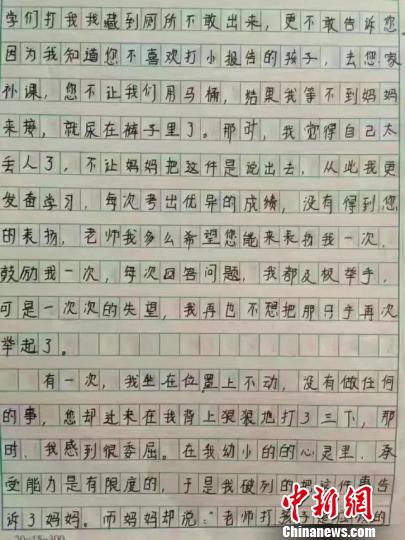 学们打我我藏到厕所不敢出来，更不敢告诉您，
因为我知道您不喜欢打小报告的孩子，去您家
补课，您不让我们用马桶，结果我等不到妈妈
来接，就尿在裤子里了。那时，我觉得自己太
丢人了，不让妈妈把这件是说出去，从此我更
发奋学习，每次考出优异的成绩，没有得到您
的表扬，老师我多么希望您能来表扬我一次，
鼓励我一次，每次回答问题，我都及极举手，
可是一次次的失望，我再也不想把那只手再次
举起了。
有一次，我坐在位置上不动，没有做任何
的事，您却过来在我背上狠狠地打了三下，那
时，我感到很委屈。在我幼小的的心灵里，承
受能力是有限度的，于是我破列的把这件事告
诉了妈妈。而妈妈却说：“老师打孩子是
20×15=300
中新网
Chinanews.com